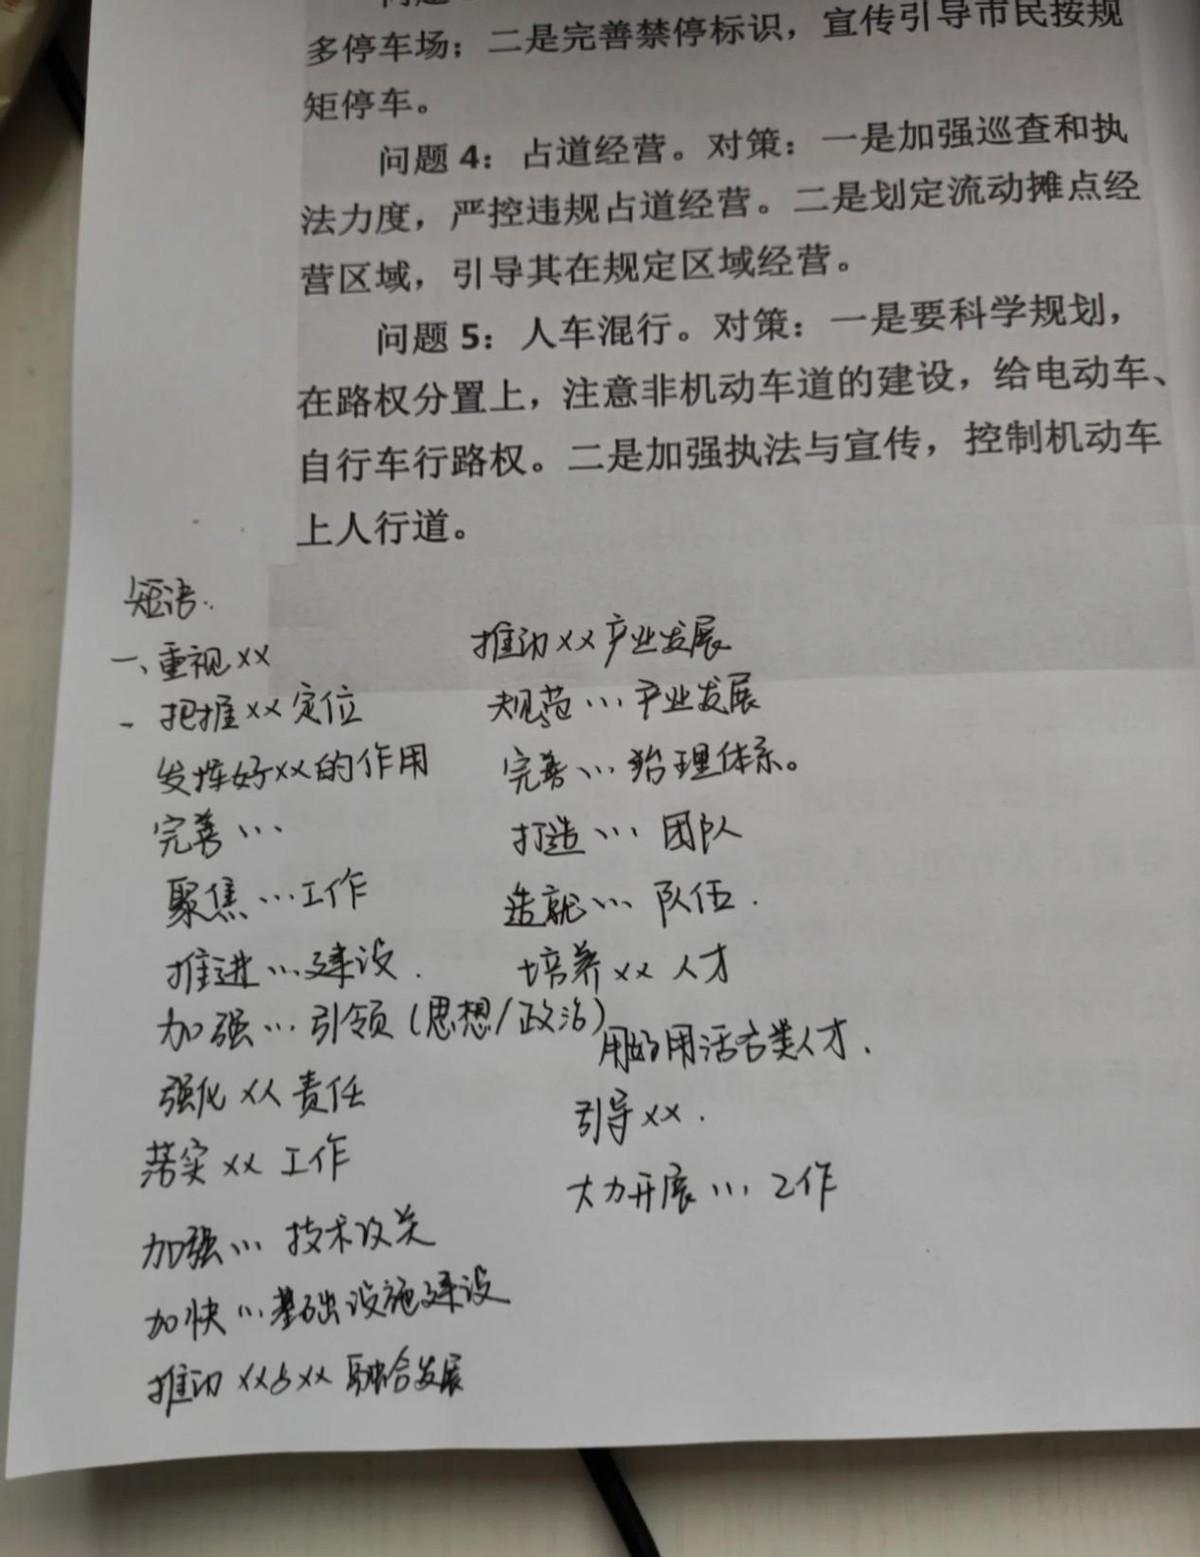 多停车场；二是完善禁停标识，宣传引导市民按规
矩停车。
问题 4：占道经营。对策：一是加强巡查和执
法力度，严控违规占道经营。二是划定流动摊点经
营区域，引导其在规定区域经营。
问题 5：人车混行。对策：一是要科学规划，
在路权分置上，注意非机动车道的建设，给电动车、
自行车行路权。二是加强执法与宣传，控制机动车
上人行道。
短语：
一、重视××
- 把握××定位
发挥好××的作用
完善…
聚焦…工作
推进…建设.
加强…引领(思想/政治)
强化××责任
落实××工作
加强…技术攻关
加快…基础设施建设
推动××与××融合发展
推动××产业发展
规范…产业发展
完善…治理体系。
打造…团队
造就…队伍.
培养××人才
用好用活各类人才.
引导××.
大力开展…工作